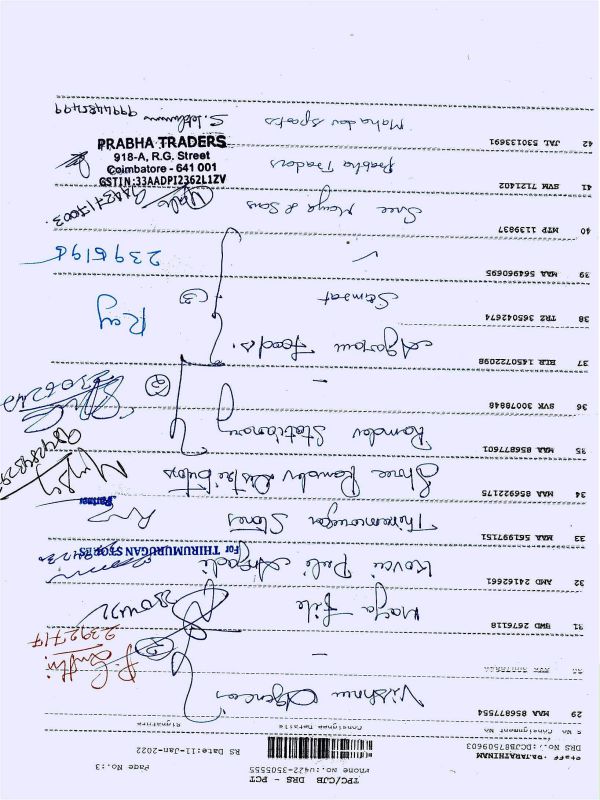 TPC/CJB DRS - PCT
Phone No.:0422-3505555
Page No.:3
Staff
DRS No.:DCJB87509603
RS Date:11-Jan-2022
S No
Consignee Details
Signature
29 MAA 856877554
Vishnu Agencies
2392717
30 SVK 30078844
-
31 BWD 2676118
Maya file
32 AMD 24162661
Kovai Pali Angadi
For THIRUMURUGAN STORES
33 MAA 561997151
Thirumurugan Stores
Partner
34 MAA 856922175
Shree Ramdev Distributors
35 MAA 856877601
Ramdev Stationary
36 SVK 30078848
-
(2)
37 BLR 1450722098
Agarwal Foods.
38 TRZ 365042674
Samrat
(3)
Ray
39 MAA 564960695
2395195
40 MTP 1139837
Sree Maya & Sons
41 SVM 7121402
Prabha Traders
PRABHA TRADERS
918-A, R.G. Street
Coimbatore - 641 001
GSTIN:33AADPI2362L1ZV
42 JAL 530133691
Mahadev sports
9994485499